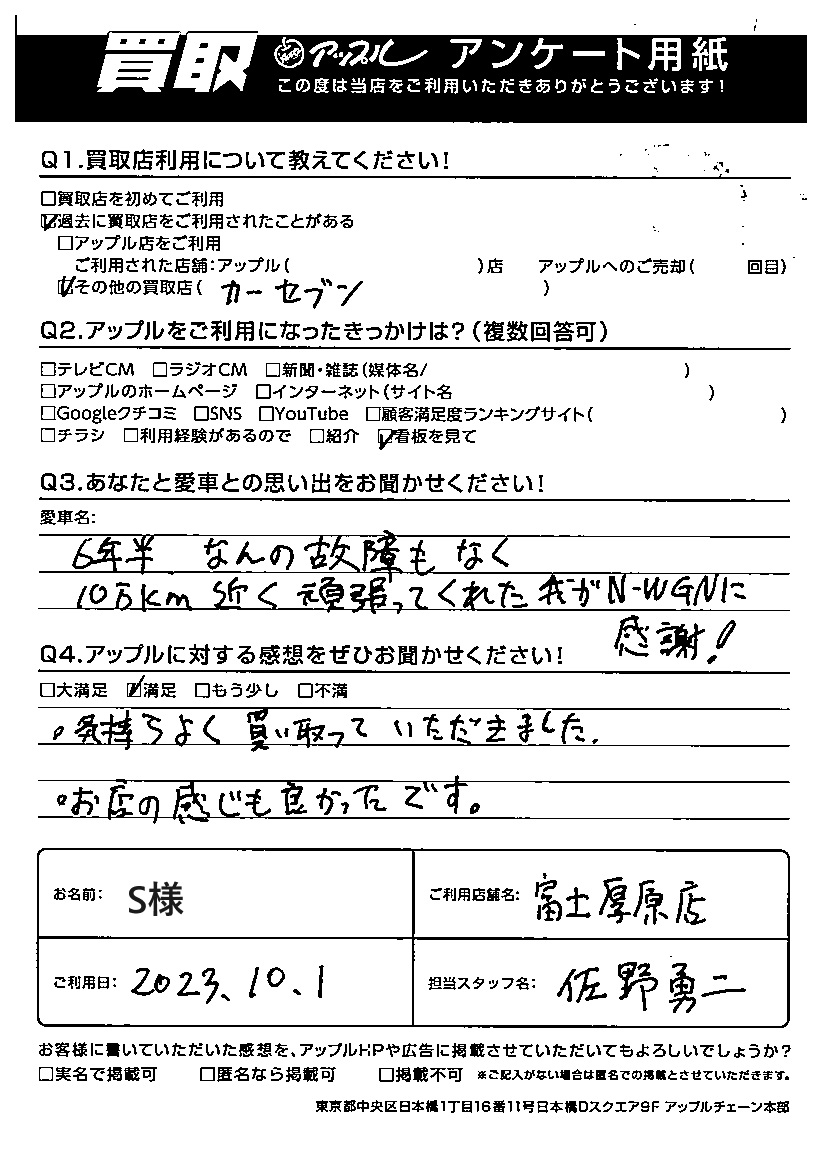 買取 アップル アンケート用紙
この度は当店をご利用いただきありがとうございます!
Q1.買取店利用について教えてください!
□買取店を初めてご利用
☑過去に買取店をご利用されたことがある
□アップル店をご利用
ご利用された店舗:アップル( )店 アップルへのご売却( 回目)
☑その他の買取店( カーセブン )
Q2.アップルをご利用になったきっかけは?(複数回答可)
□テレビCM □ラジオCM □新聞・雑誌(媒体名/ )
□アップルのホームページ □インターネット(サイト名 )
□Googleクチコミ □SNS □YouTube □顧客満足度ランキングサイト( )
□チラシ □利用経験があるので □紹介 ☑看板を見て
Q3.あなたと愛車との思い出をお聞かせください!
愛車名:
6年半 なんの故障もなく
10万km 近く頑張ってくれた我がN-WGNに
感謝!
Q4.アップルに対する感想をぜひお聞かせください!
□大満足 ☑満足 □もう少し □不満
。気持ちよく買い取っていただきました。
。お店の感じも良かったです。
お名前: S様
ご利用店舗名: 富士厚原店
ご利用日: 2023.10.1
担当スタッフ名: 佐野勇二
お客様に書いていただいた感想を、アップルHPや広告に掲載させていただいてもよろしいでしょうか?
□実名で掲載可 □匿名なら掲載可 □掲載不可 ※ご記入がない場合は匿名での掲載とさせていただきます。
東京都中央区日本橋1丁目16番11号日本橋Dスクエア9F アップルチェーン本部